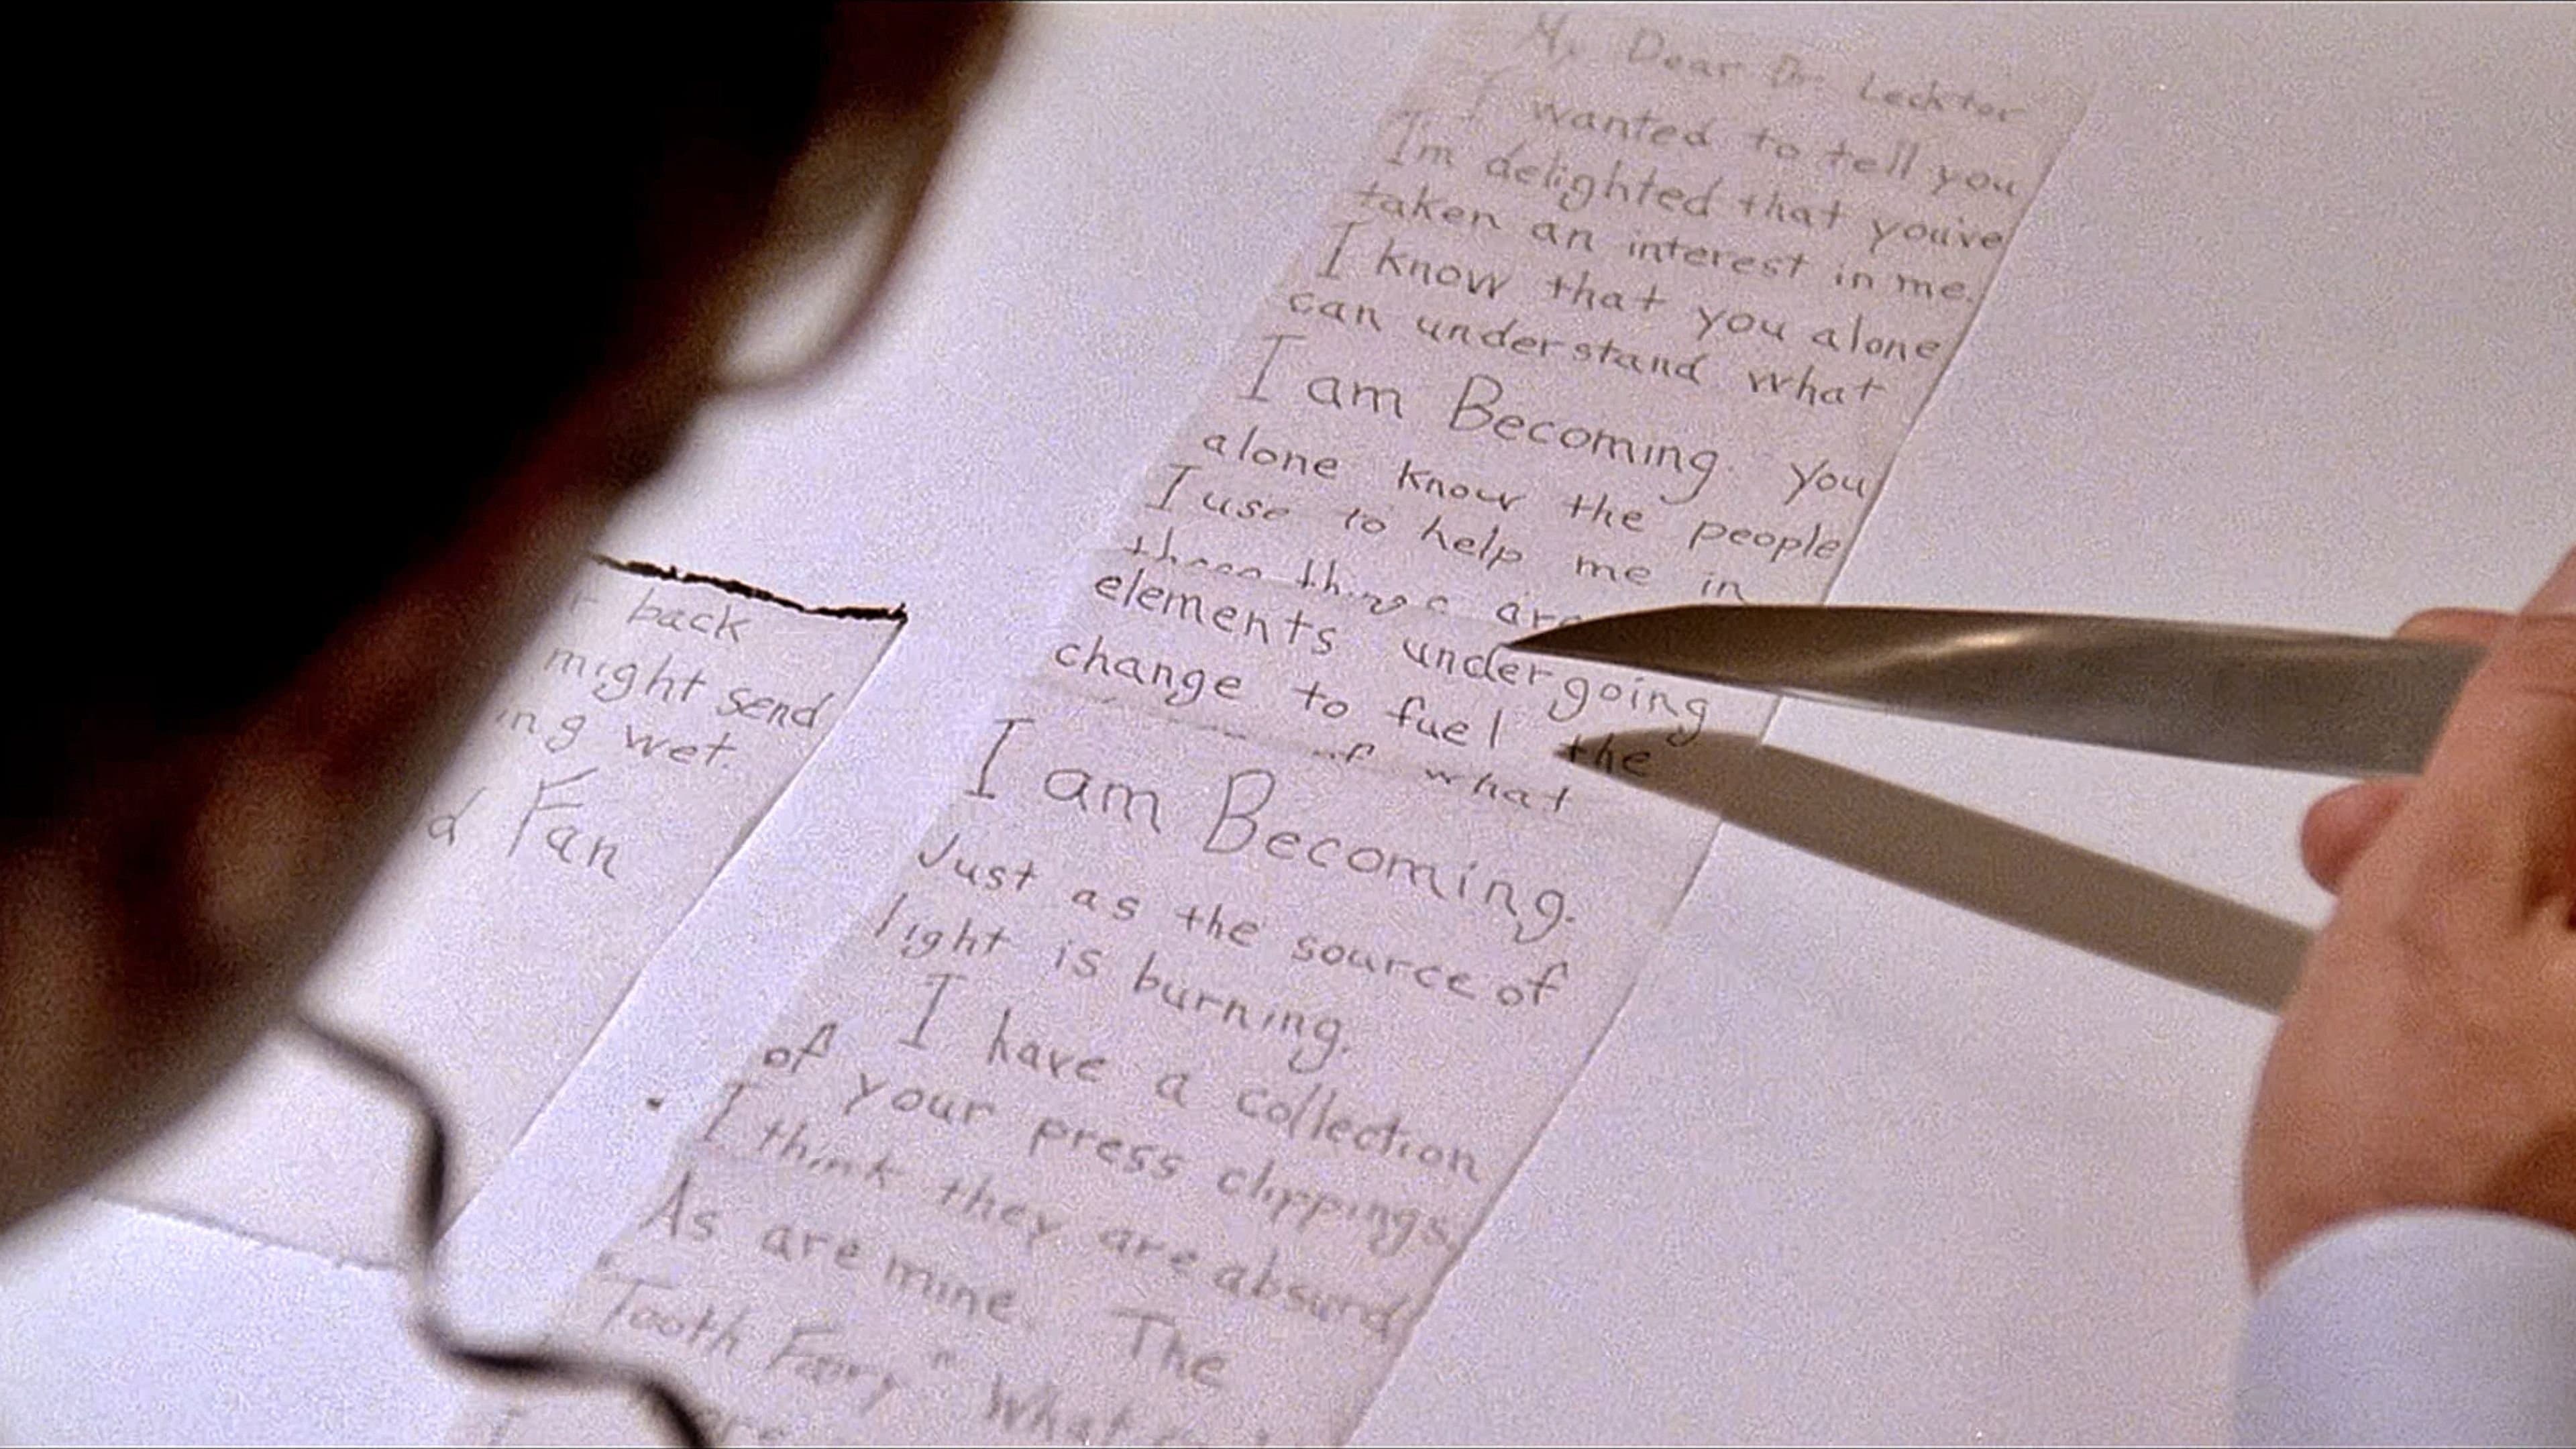 My Dear Dr Lecktor
I wanted to tell you
I'm delighted that you've
taken an interest in me.
I know that you alone
can understand what
I am Becoming. You
alone know the people
I use to help me in
things are
elements undergoing
change to fuel the
of what
I am Becoming.
Just as the source of
light is burning.
I have a collection
of your press clippings.
I think they are absurd
As are mine. The
"Tooth Fairy" What
back
might send
ing wet.
d Fan